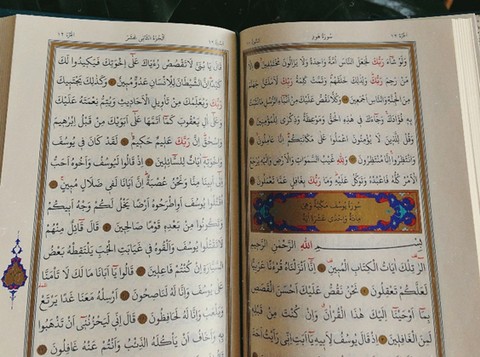 سُورَةُ هُودٍ
وَلَوْ شَاءَ رَبُّكَ لَجَعَلَ النَّاسَ أُمَّةً وَاحِدَةً وَلَا يَزَالُونَ مُخْتَلِفِينَ إِلَّا
مَنْ رَحِمَ رَبُّكَ وَلِذٰلِكَ خَلَقَهُمْ وَتَمَّتْ كَلِمَةُ رَبِّكَ لَأَمْلَأَنَّ جَهَنَّمَ
مِنَ الْجِنَّةِ وَالنَّاسِ أَجْمَعِينَ وَكُلًّا نَقُصُّ عَلَيْكَ مِنْ أَنْبَاءِ الرُّسُلِ مَا نُثَبِّتُ
بِهِ فُؤَادَكَ وَجَاءَكَ فِي هٰذِهِ الْحَقُّ وَمَوْعِظَةٌ وَذِكْرٰى لِلْمُؤْمِنِينَ
وَقُلْ لِلَّذِينَ لَا يُؤْمِنُونَ اعْمَلُوا عَلٰى مَكَانَتِكُمْ إِنَّا عَامِلُونَ
وَانْتَظِرُوا إِنَّا مُنْتَظِرُونَ وَلِلّٰهِ غَيْبُ السَّمٰوَاتِ وَالْأَرْضِ وَإِلَيْهِ يُرْجَعُ
الْأَمْرُ كُلُّهُ فَاعْبُدْهُ وَتَوَكَّلْ عَلَيْهِ وَمَا رَبُّكَ بِغَافِلٍ عَمَّا تَعْمَلُونَ
سُورَةُ يُوسُفَ مَكِّيَّةٌ وَهِيَ
مِائَةٌ وَإِحْدٰى عَشْرَةَ اٰيَةً
بِسْمِ اللّٰهِ الرَّحْمٰنِ الرَّحِيمِ
الٓرٰ تِلْكَ اٰيَاتُ الْكِتَابِ الْمُبِينِ إِنَّا أَنْزَلْنَاهُ قُرْاٰنًا عَرَبِيًّا
لَعَلَّكُمْ تَعْقِلُونَ نَحْنُ نَقُصُّ عَلَيْكَ أَحْسَنَ الْقَصَصِ
بِمَا أَوْحَيْنَا إِلَيْكَ هٰذَا الْقُرْاٰنَ وَإِنْ كُنْتَ مِنْ قَبْلِهِ
لَمِنَ الْغَافِلِينَ إِذْ قَالَ يُوسُفُ لِأَبِيهِ يَا أَبَتِ إِنِّي رَأَيْتُ أَحَدَ
الْجُزْءُ الثَّانِي عَشَرَ
قَالَ يَا بُنَيَّ لَا تَقْصُصْ رُءْيَاكَ عَلٰى إِخْوَتِكَ فَيَكِيدُوا لَكَ
كَيْدًا إِنَّ الشَّيْطَانَ لِلْإِنْسَانِ عَدُوٌّ مُبِينٌ وَكَذٰلِكَ يَجْتَبِيكَ
رَبُّكَ وَيُعَلِّمُكَ مِنْ تَأْوِيلِ الْأَحَادِيثِ وَيُتِمُّ نِعْمَتَهُ عَلَيْكَ
وَعَلٰى اٰلِ يَعْقُوبَ كَمَا أَتَمَّهَا عَلٰى أَبَوَيْكَ مِنْ قَبْلُ إِبْرٰهِيمَ
وَإِسْحٰقَ إِنَّ رَبَّكَ عَلِيمٌ حَكِيمٌ لَقَدْ كَانَ فِي يُوسُفَ
وَإِخْوَتِهِ اٰيَاتٌ لِلسَّائِلِينَ إِذْ قَالُوا لَيُوسُفُ وَأَخُوهُ أَحَبُّ
إِلٰى أَبِينَا مِنَّا وَنَحْنُ عُصْبَةٌ إِنَّ أَبَانَا لَفِي ضَلَالٍ مُبِينٍ
اقْتُلُوا يُوسُفَ أَوِ اطْرَحُوهُ أَرْضًا يَخْلُ لَكُمْ وَجْهُ أَبِيكُمْ
وَتَكُونُوا مِنْ بَعْدِهِ قَوْمًا صَالِحِينَ قَالَ قَائِلٌ مِنْهُمْ
لَا تَقْتُلُوا يُوسُفَ وَأَلْقُوهُ فِي غَيَابَتِ الْجُبِّ يَلْتَقِطْهُ بَعْضُ
السَّيَّارَةِ إِنْ كُنْتُمْ فَاعِلِينَ قَالُوا يَا أَبَانَا مَا لَكَ لَا تَأْمَنَّا
عَلٰى يُوسُفَ وَإِنَّا لَهُ لَنَاصِحُونَ أَرْسِلْهُ مَعَنَا غَدًا يَرْتَعْ
وَيَلْعَبْ وَإِنَّا لَهُ لَحَافِظُونَ قَالَ إِنِّي لَيَحْزُنُنِي أَنْ تَذْهَبُوا
بِهِ وَأَخَافُ أَنْ يَأْكُلَهُ الذِّئْبُ وَأَنْتُمْ عَنْهُ غَافِلُونَ